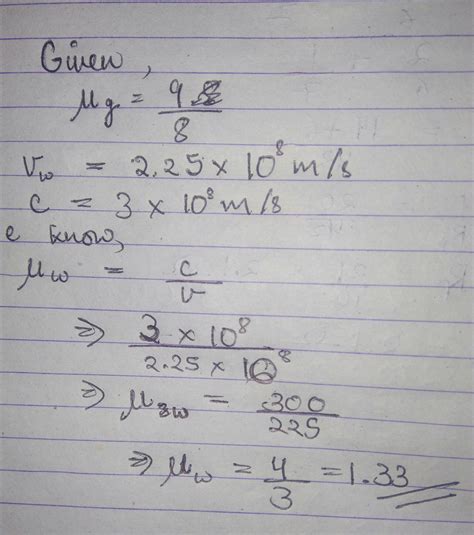 Given,
μg = 9/8
Vw = 2.25 × 10⁸ m/s
c = 3 × 10⁸ m/s
e know,
μw = c/v
⇒ 3 × 10⁸ / 2.25 × 10⁸
⇒ μw = 300/225
⇒ μw = 4/3 = 1.33